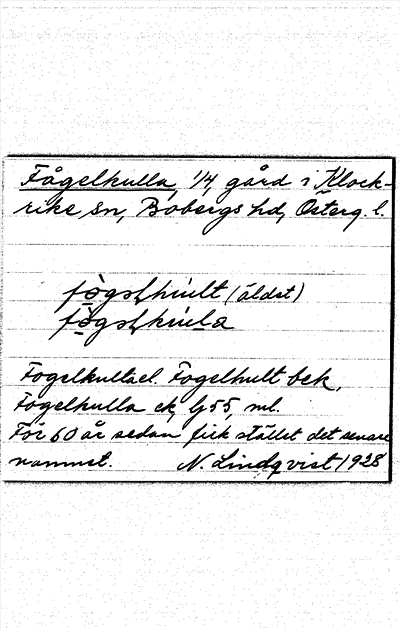 Fågelkulla, 1/4, gård i Klock-
rike sn, Bobergs hd, Österg. l.
(äldst)
Fogelkulta el. Fogelhult bek,
Fogelkulla ek, ml.
För 60 år sedan fick stället det senare
namnet. N. Lindqvist 1928